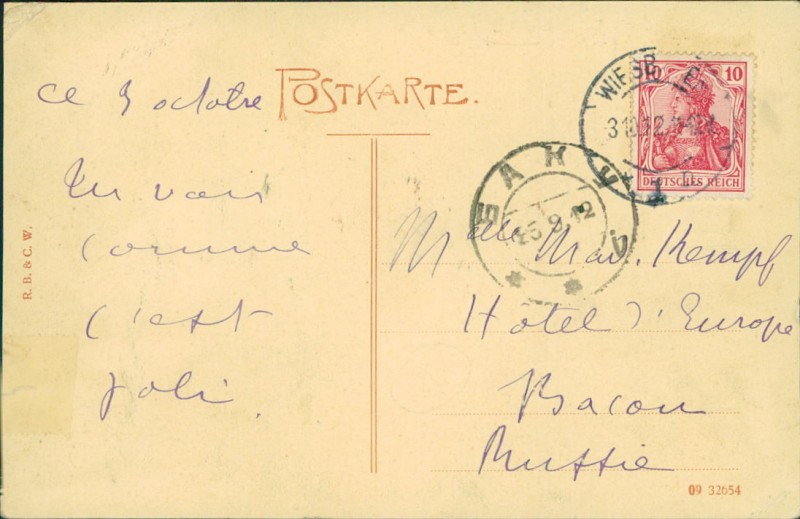 POSTKARTE.
ce 3 octobre
Tu vois
comme
c'est
joli.
R. B. & C. W.
10 10
DEUTSCHES REICH
WIESB
3 10.12
БАКУ
25 9 12
Melle Mar. Kempf
Hôtel d'Europe
Bacou
Russie
09 32654